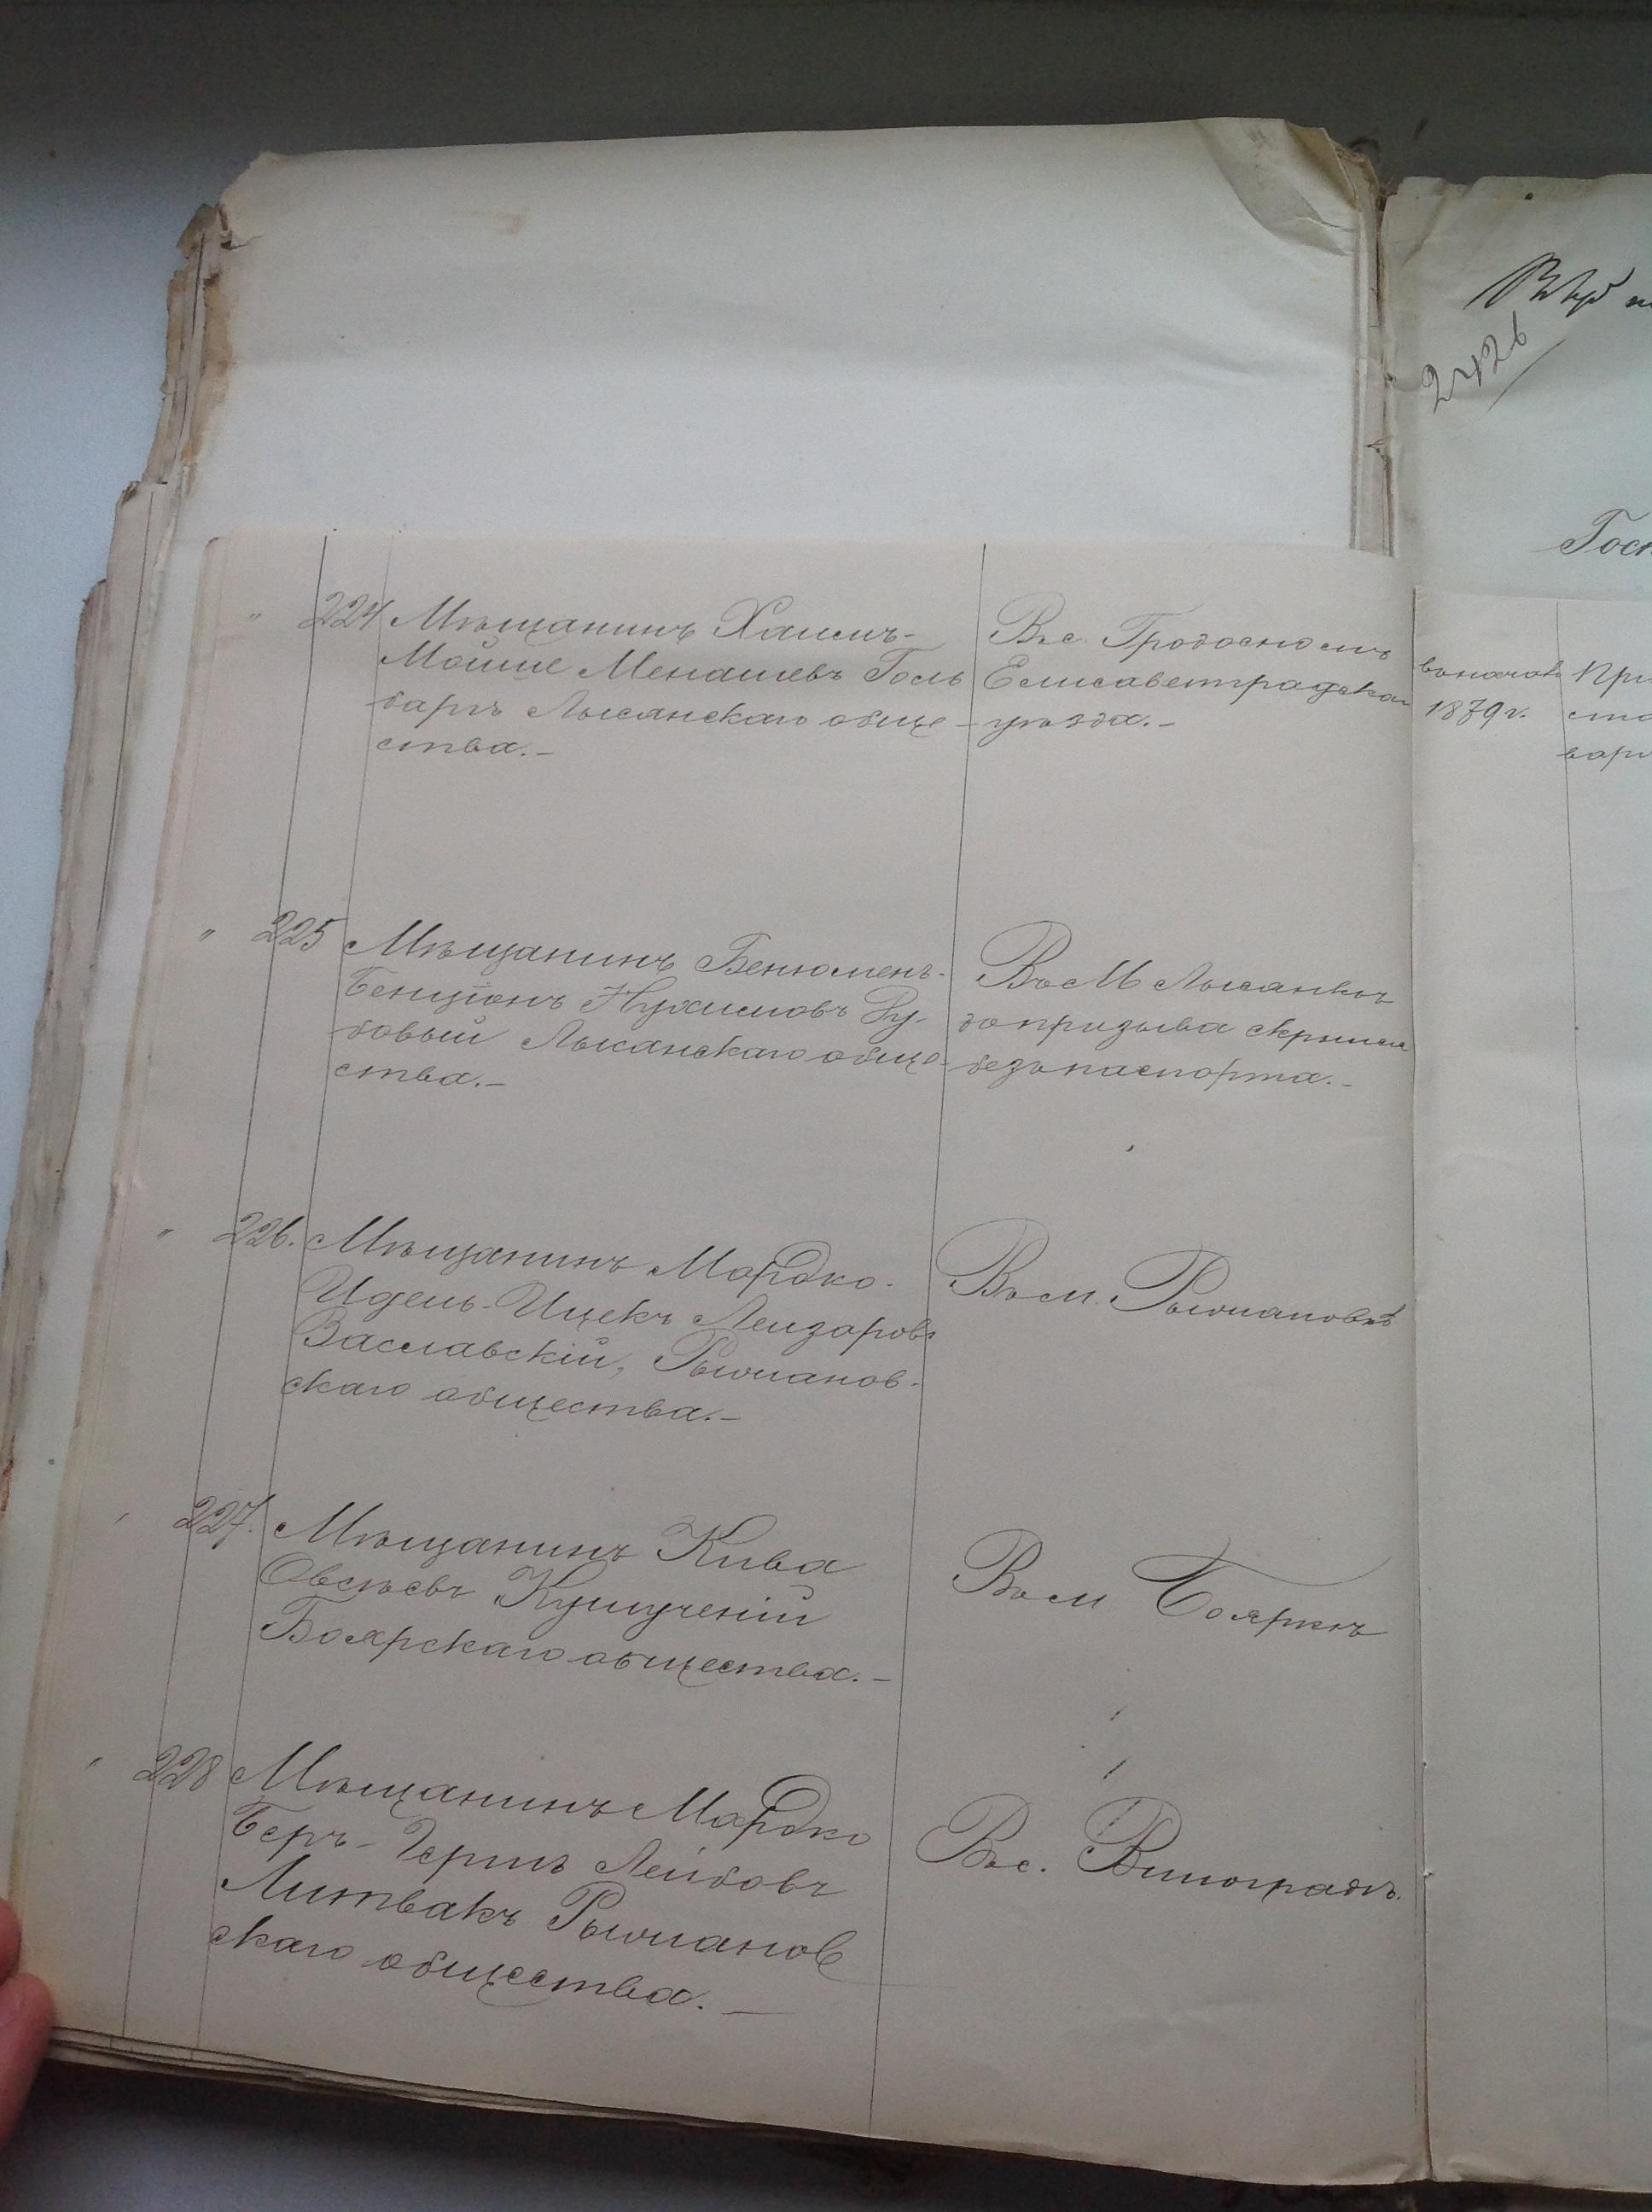 " 224 Мѣщанинъ Хаимъ-
Мойше Менашевъ Голь
барг Лысянскаго обще-
ства.-
Въ с.
Елисаветградска
уѣзда.-
" 225 Мѣщанинъ Бенюменъ-
Бенціонъ Нухимовъ Ду-
бовый Лысянскаго обще-
ства.-
Въ М Лысянкѣ
до призыва скрылся
безъ паспорта.-
" 226. Мѣщанинъ Мордко-
Идель-Ицекъ Лейзоровъ
Заславскій, Рыжанов-
скаго общества.-
Въ м. Рыжановкѣ
227. Мѣщанинъ Кива
Овсѣевъ
Боярскаго общества.-
Въ м Бояркѣ
228 Мѣщанинъ Мордко
Беръ-Гершъ Лейбовъ
Литвакъ Рыжанов
скаго общества.-
Въ с. Виноградъ.
2426
Госп
1879 г.
При